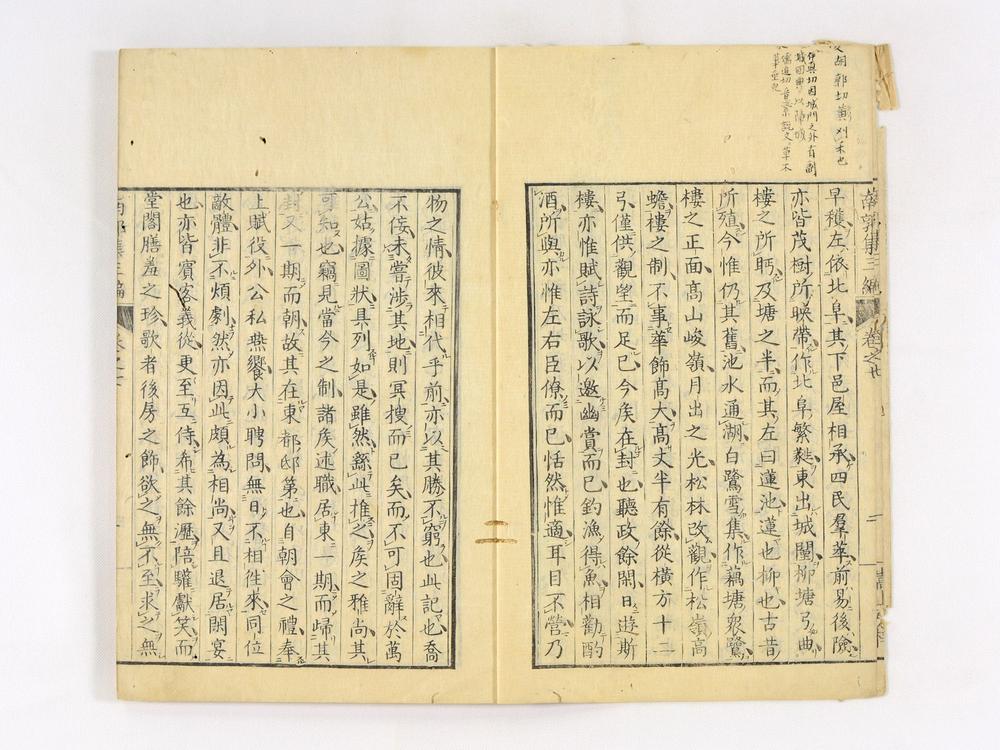 胡郭切黄刈禾也
伊與切因城門之外有副
城回曲以障城
早穫左依北阜其下邑屋相承四民羣萃前易後險
亦皆茂樹所映帶作北阜繁蕤東出城闉柳塘弓曲
樓之所眄及塘之半而其左曰蓮池蓮也柳也古昔
所殖今惟仍其舊池水通湖白鷺雪集作藕塘衆鷺
樓之正面高山峻嶺月出之光松林改觀作松嶺高
蟾樓之制不事華飾高大高丈半有餘從橫方十二
弓僅供觀望而足已今矦在封也聽政餘閒日遊斯
樓亦惟賦詩詠歌以邀幽賞而已釣漁得魚相勸酌
酒所與亦惟左右臣僚而已恬然惟適耳目不營乃
南郭集三編
卷之七
物之情彼來相代乎前亦以其勝不窮也此記也喬
不佞未嘗涉其地則冥搜而已矣而不可固辭於萬
公姑據圖狀具列如是雖然繇此推之矦之雅尚其
可知也竊見當今之制諸矦述職居東一期而歸其
封又一期而朝故其在東都邸第也自朝會之禮奉
上賦役外公私燕饗大小聘問無日不相徃來同位
敵體非不煩劇然亦因此頗為相尚又且退居閑宴
也亦皆賓客義從更至互侍希其餘瀝陪驩獻笑而
堂閣膳羞之珍歌者後房之飾欲之無不至求之無